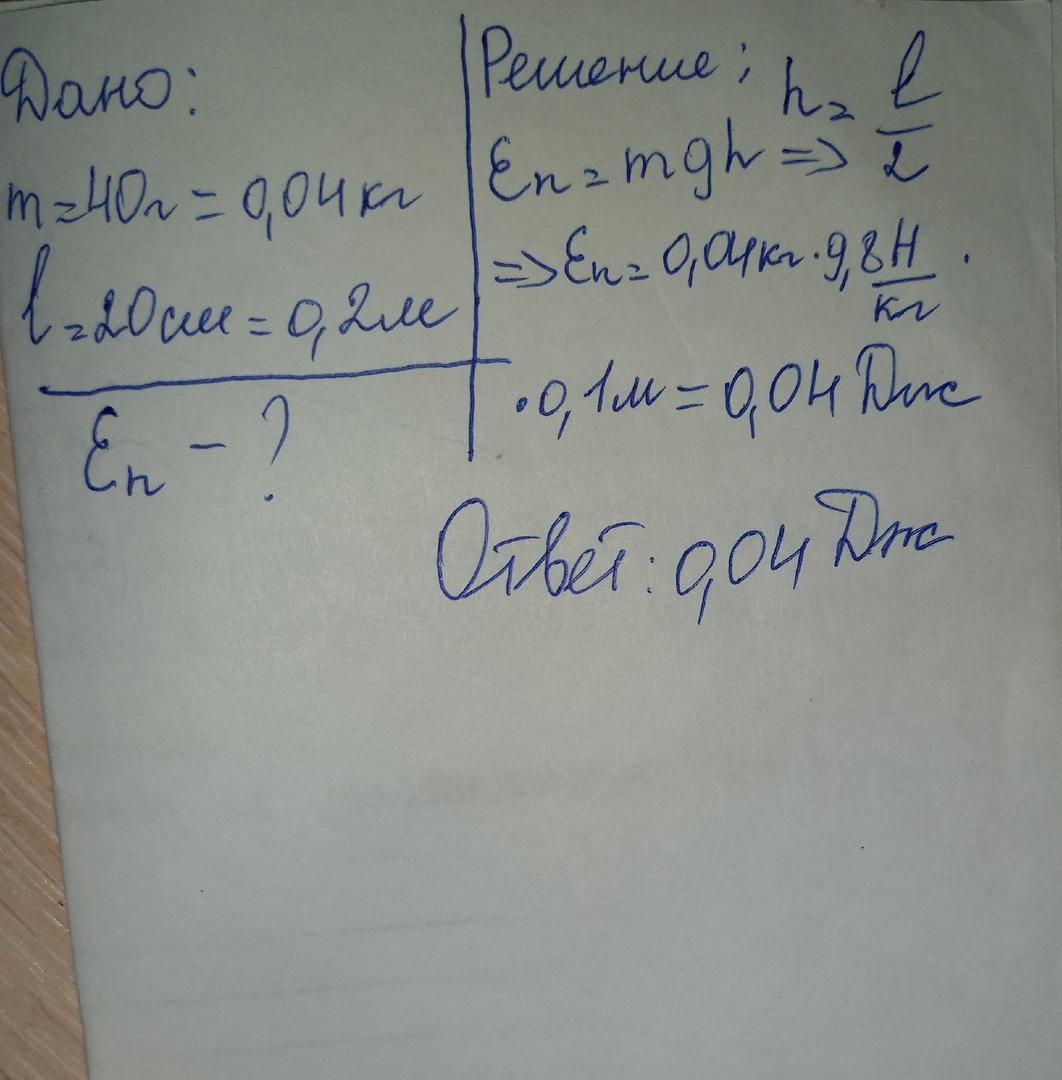 Дано:
m=40г=0,04кг
l=20см=0,2м
Eп-?
Решение; h=l/2
Eп=mgh=>
=>Eп=0,04кг·9,8Н/кг·
·0,1м=0,04Дж
Ответ: 0,04Дж